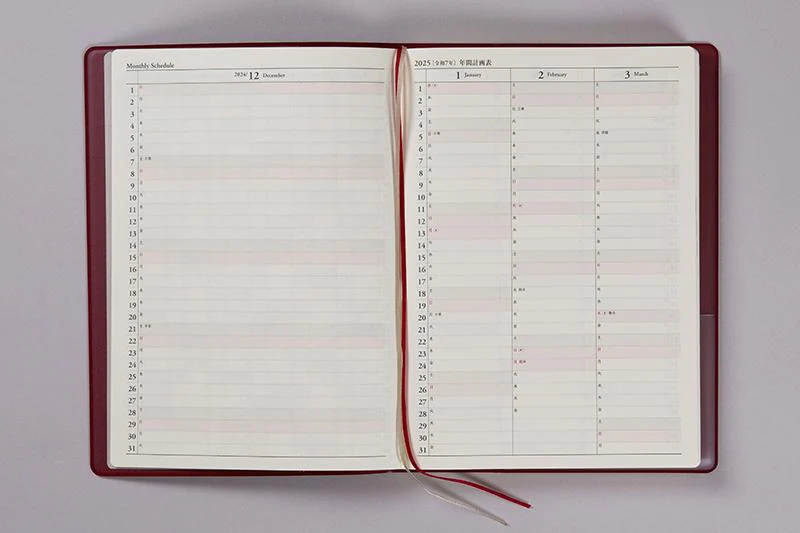 Monthly Schedule
2024/12 December
1 日
2 月
3 火
4 水
5 木
6 金
7 土 大雪
8 日
9 月
10 火
11 水
12 木
13 金
14 土
15 日
16 月
17 火
18 水
19 木
20 金
21 土 冬至
22 日
23 月
24 火
25 水
26 木
27 金
28 土
29 日
30 月
31 火
2025［令和7年］年間計画表
1 January 2 February 3 March
1 水 土 土
2 木 日 日
3 金 月 立春 月
4 土 火 火
5 日 小寒 水 水 啓蟄
6 月 木 木
7 火 金 金
8 水 土 土
9 木 日 日
10 金 月 月
11 土 火 火
12 日 水 水
13 月 木 木
14 火 金 金
15 水 土 土
16 木 日 日
17 金 月 月
18 土 火 雨水 火
19 日 水 水
20 月 大寒 木 木 春分
21 火 金 金
22 水 土 土
23 木 日 日
24 金 月 振休 月
25 土 火 火
26 日 水 水
27 月 木 木
28 火 金 金
29 水 土
30 木 日
31 金 月